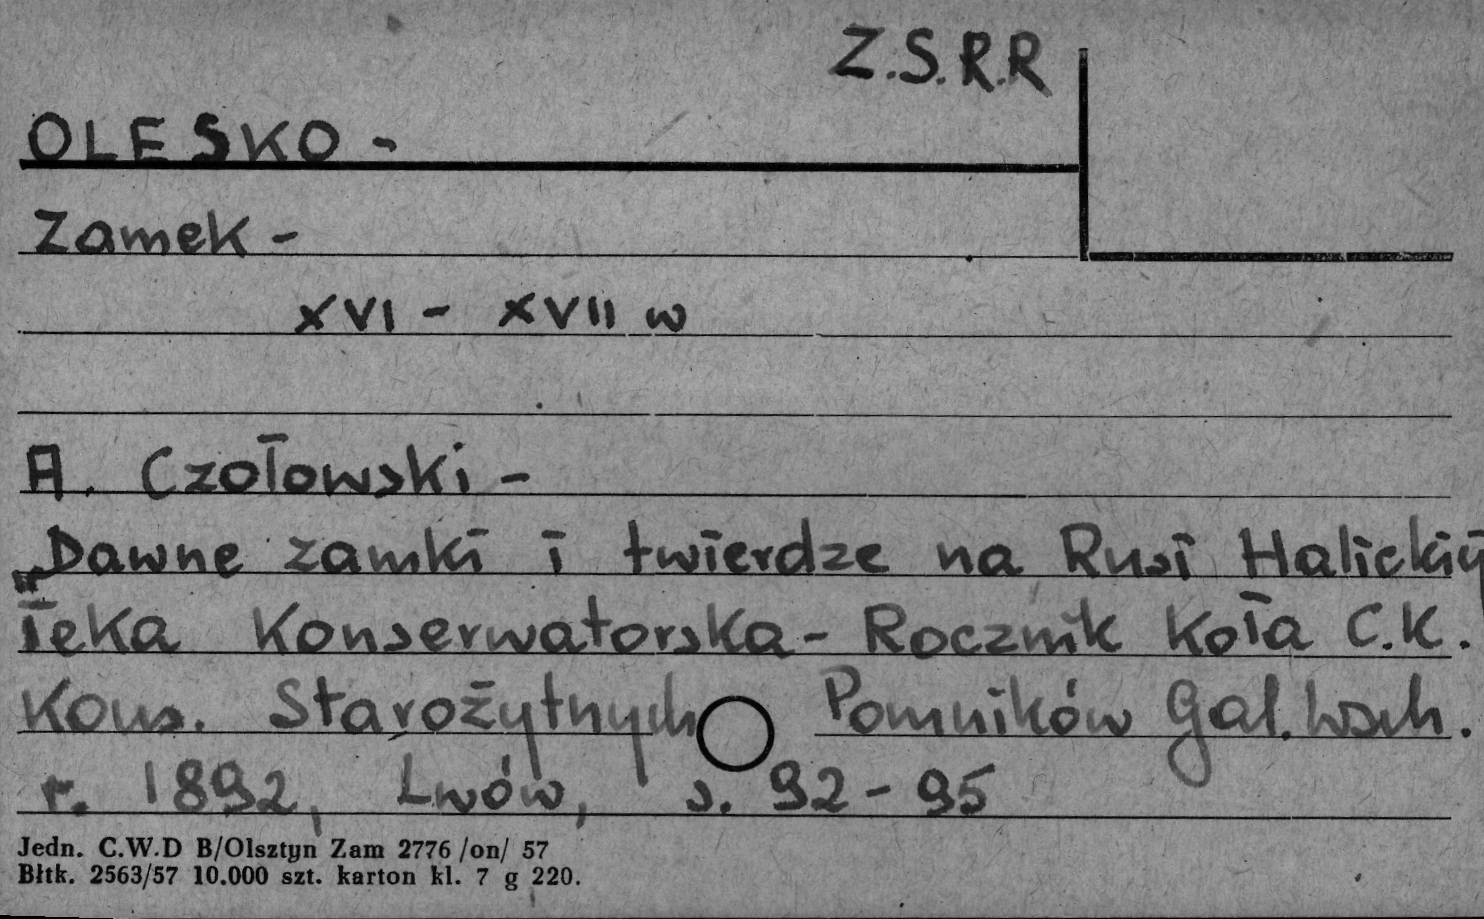 Z.S.R.R
OLESKO -
Zamek -
XVI - XVII w
A. Czołowski -
Dawne zamki i twierdze na Rusi Halickiej
w
Teka Konserwatorska - Rocznik Koła C.K.
Kons. Starożytnych Pomników Gal. Wsch.
r. 1892, Lwów, s. 92-95
Jedn. C.W.D B/Olsztyn Zam 2776 /on/ 57
Błtk. 2563/57 10.000 szt. karton kl. 7 g 220.